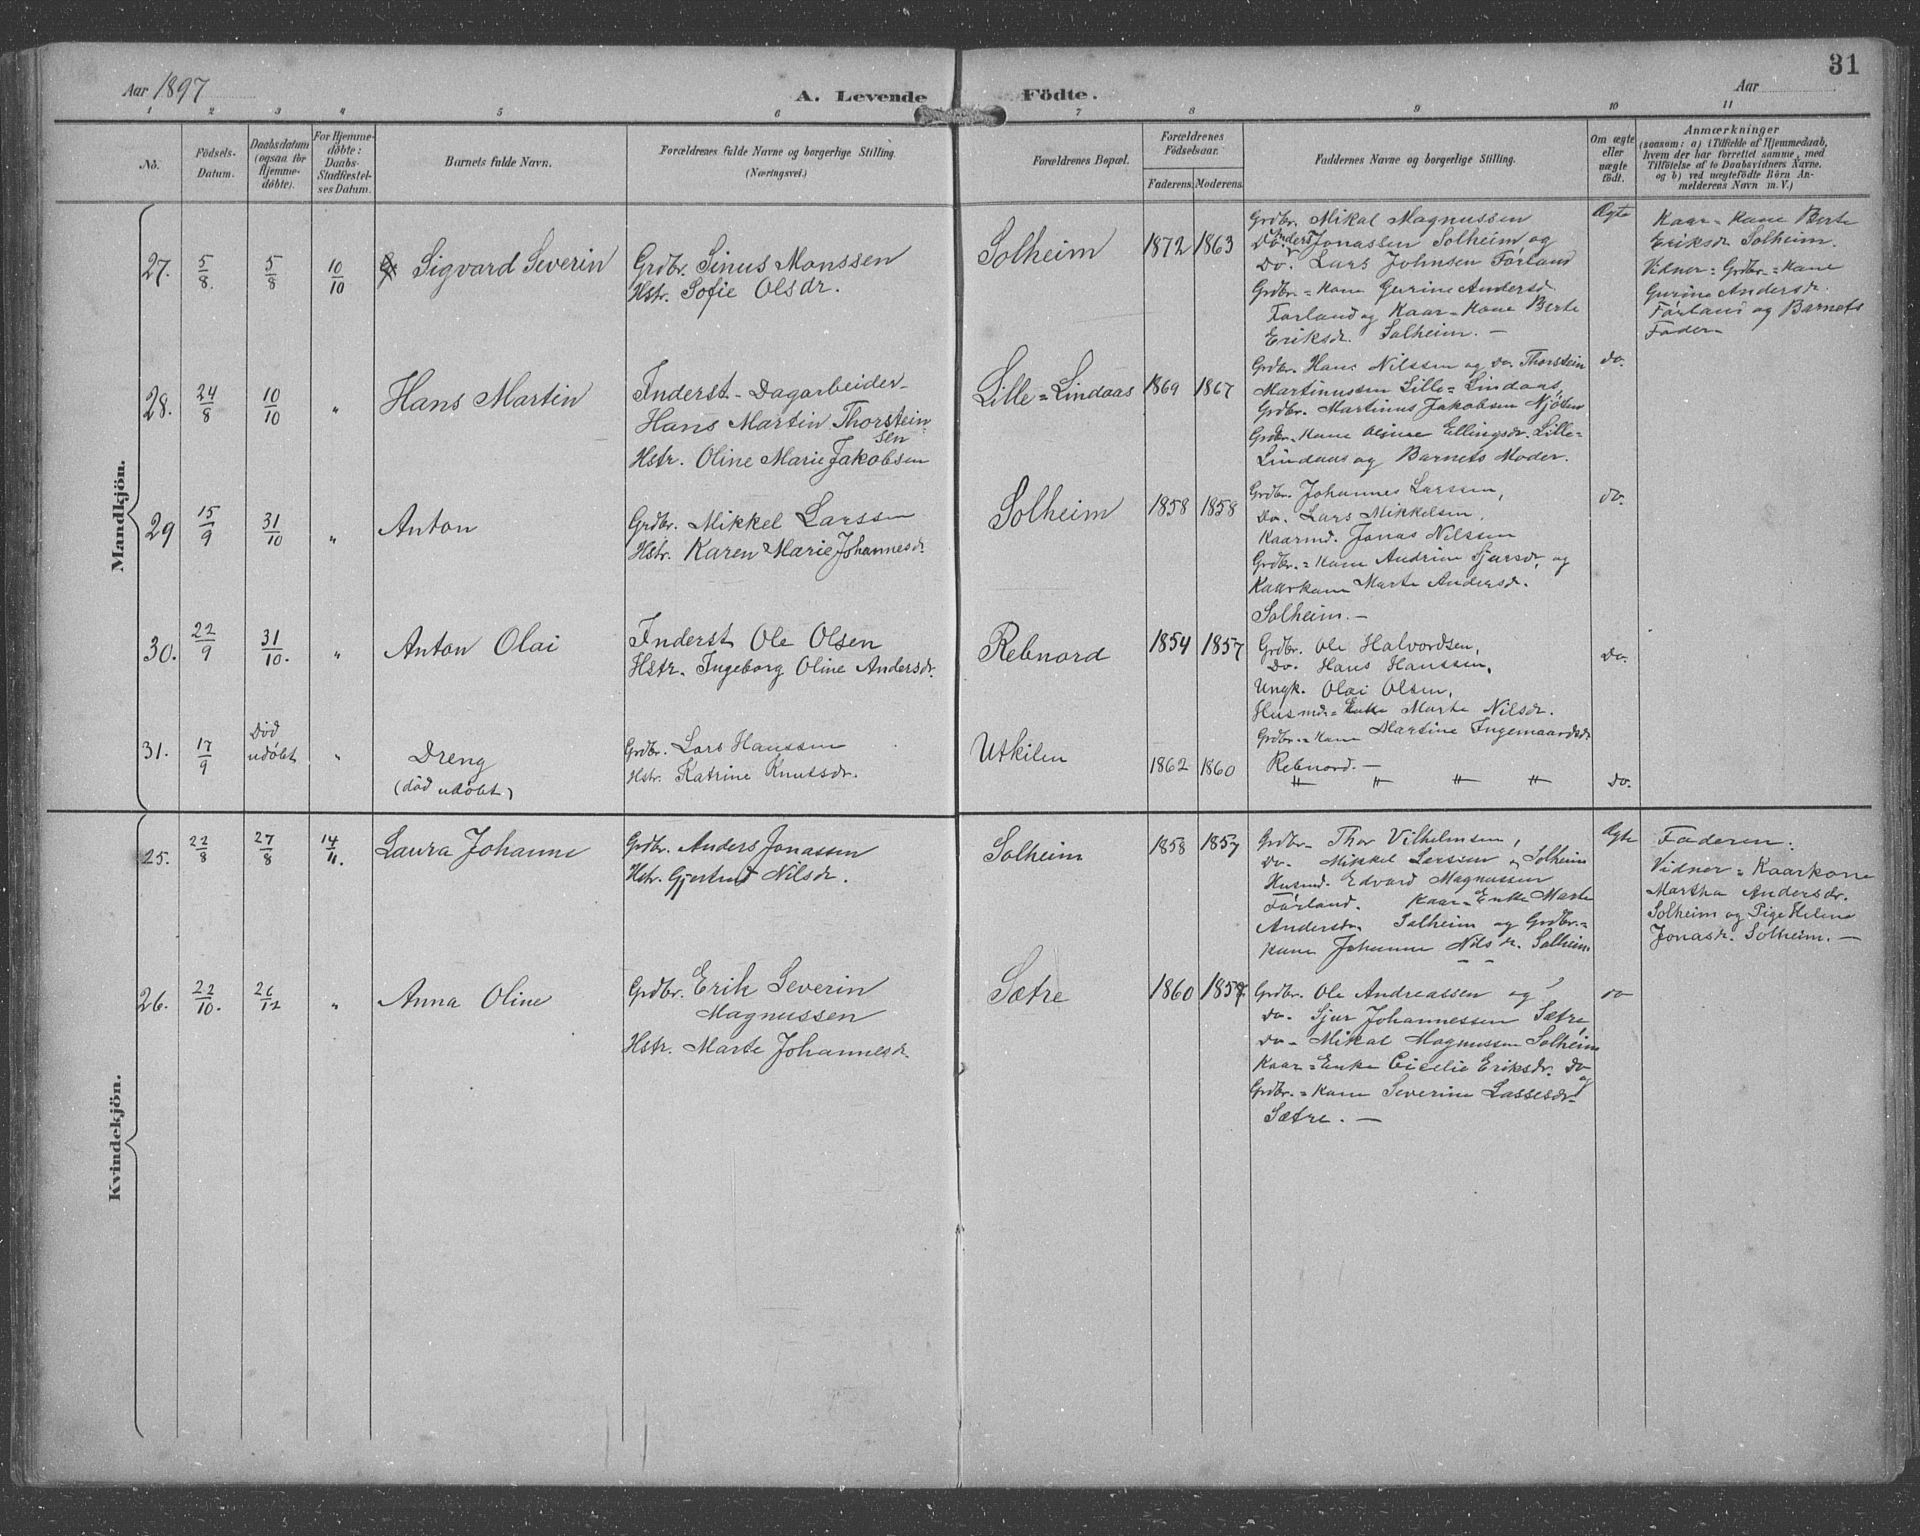 31
Aar 1897
A. Levende Födte.
Aar
1 2 3 4 5 6 7 8 9 10 11
No.
Födsels-
Datum.
Daabsdatum
(ogsaa for
Hjemme-
döbte).
For Hjemme-
døbte:
Daabs-
Stadfestel-
ses Datum.
Barnets fulde Navn.
Forældrenes fulde Navne og borgerlige Stilling.
(Næringsvei.)
Forældrenes Bopæl.
Forældrenes
Födselsaar.
Faderens. Moderens.
Faddernes Navne og borgerlige Stilling.
Om ægte
eller
uægte
födt.
Anmærkninger
(saasom: a) i Tilfælde af Hjemmedaab,
hvem der har forrettet samme, med
Tilföielse af to Daabsvidners Navne.
og b) ved uægtefödte Börn An-
melderens Navn m. V.)
Mandkjön.
27. 5/8. 5/8 10/10 Sigvard Severin
Grdbr. Sinus Monssen
Hstr. Sofie Olsdr.
Solheim 1872 1863
Grdbr. Mikal Magnussen
Do. Anders Jonassen Solheim og
Do. Lars Johnsen Förland
Grdbr.=Kone Gurine Andersdr.
Førland og Kaar=Kone Berte
Eriksdr. Solheim. —
Ægte
Kaar=Kone Berte
Eriksdr. Solheim.
Vidner=Grdbr.=Kone
Gurine Andersdr.
Førland og Barnets
Fader—
28. 24/8 10/10 " Hans Martin
Inderst-Dagarbeider-
Hans Martin Thorstein-
sen
Hstr. Oline Marie Jakobsen
Lille=Lindaas 1869 1867
Grdbr. Hans Nilssen og Do. Thorstein
Martinussen Lille=Lindaas,
Grdbr. Martinus Jakobsen Njöten
Grdbr.=Kone Ellingsdr. Lille=
Lindaas og Barnets Moder.
do.
29 15/9 31/10 " Anton
Grdbr. Mikkel Larssen
Hstr. Karen Marie Johannesdr.
Solheim 1858 1858
Grdbr. Johannes Larssen,
Do. Lars Mikkelsen,
Kaarmd. Jonas Nilssen
Grdbr.=Kone Andrine Sjursdr, og
Kaarkone Marte Andersdr.
Solheim. —
do.
30. 22/9 31/10. " Anton Olai
Inderst Ole Olsen
Hstr. Ingeborg Oline Andersdr.
Rebnord 1854 1857
Grdbr. Ole Halvordsen,
Do. Hans Hanssen,
Ungk. Olai Olsen,
Husmd=Enke Marte Nilsdr.
Grdbr.=Kone Martine Ingemaardsdr.
Rebnord. —
Do.
31. 17/9 Död
udöbt " Dreng
(död udöbt)
Grdbr. Lars Hanssen
Hstr. Katrine Knutsdr.
Utkilen 1862 1860
" " " " do.
Kvindekjön.
25. 22/8 27/8 14/11. Laura Johanne
Grdbr. Anders Jonassen
Hstr. Gjertrud Nilsdr.
Solheim 1858 1857
Grdbr. Thor Vilhelmsen,
Do. Mikkel Larssen og Solheim
Husmd. Edvard Magnussen
Førland. Kaar=Enke Marte
Andersdr. Solheim og Grdbr.=
Kone Johanne Nilsdr. Solheim
Ægte
Faderen.
Vidner=Kaarkone
Martha Andersdr.
Solheim og Pige Helene
Jonasdr. Solheim. —
26. 22/10. 26/12 " Anna Oline
Grdbr. Erik Severin
Magnussen
Hstr. Marte Johannesdr.
Sætre 1860
Grdbr. Ole Andreassen og
Do. Sjur Johannessen Sætre,
Do. Mikal Magnussen Solheim
Kaar=Enke Cicelie Eriksdr. Do og
Grdbr.=Kone Severine Lassesdr.
Sætre. —
do